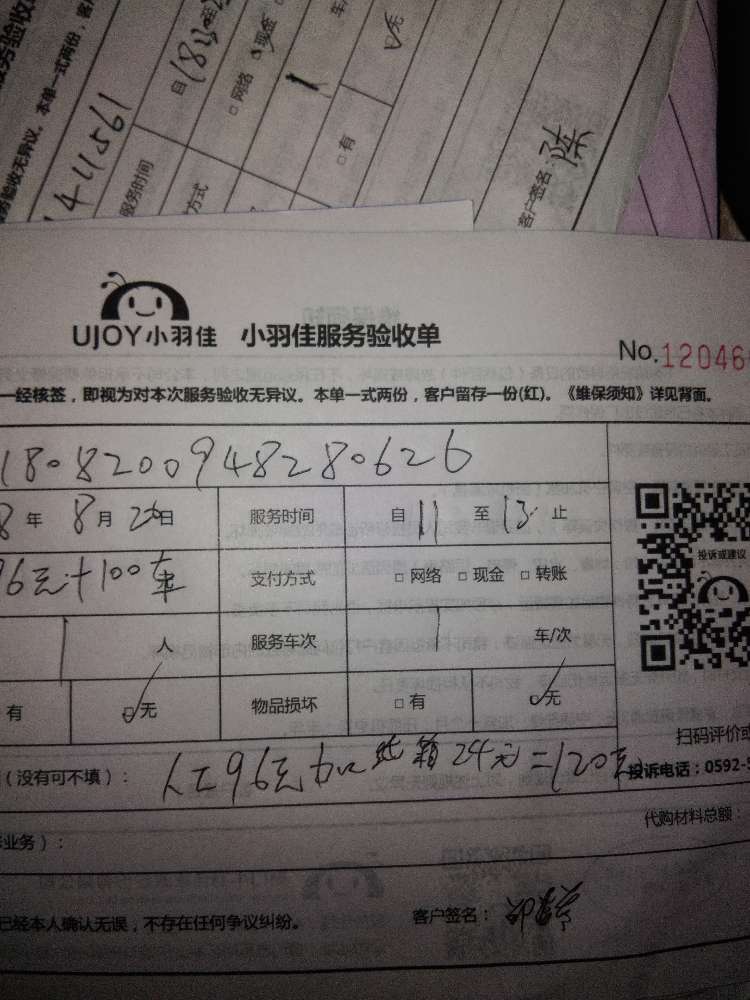 服务验收
验收无异议。本单一式两份，客
1411561
服务时间
自
方式
□网络 □现金
1
车/
□有
☑无
客户签名：陈
UJOY小羽佳 小羽佳服务验收单
No.12046
一经核签，即视为对本次服务验收无异议。本单一式两份，客户留存一份(红)。《维保须知》详见背面。
1808200948280626
8年8月26日 服务时间 自11至13止
96元+100车 支付方式 □网络 □现金 □转账
投诉或建议
1人 服务车次 1车/次
有 ☑无 物品损坏 □有 ☑无
扫码评价或
（没有可不填）： 人工96元加纸箱24元=120元
投诉电话：0592-5
代购材料总额：
业务）：
已经本人确认无误，不存在任何争议纠纷。 客户签名：